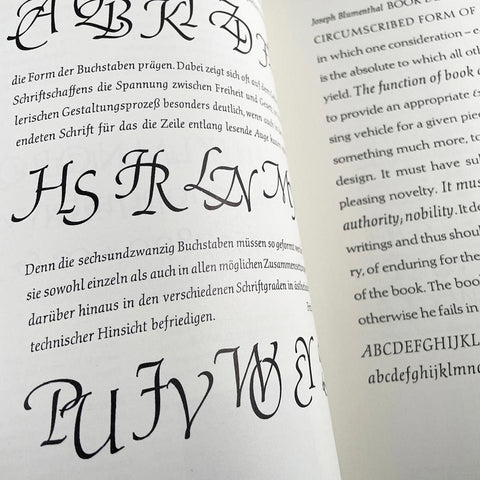 ABKL
die Form der Buchstaben prägen. Dabei zeigt sich oft auf dem
Schriftschaffens die Spannung zwischen Freiheit und
lerischen Gestaltungsprozeß besonders deutlich, wenn
endeten Schrift für das die Zeile entlang lesende Auge
HS HR LN
Denn die sechsundzwanzig Buchstaben müssen so geformt
sie sowohl einzeln als auch in allen möglichen
darüber hinaus in den verschiedenen Schriftgraden in
technischer Hinsicht befriedigen.
PU IV WO
Joseph Blumenthal BOOK
CIRCUMSCRIBED FORM OF
in which one consideration – e
is the absolute to which all oth
yield. The function of book
to provide an appropriate &
sing vehicle for a given piec
something much more, to
design. It must have su
pleasing novelty. It mus
authority; nobility. It de
writings and thus shou
ry, of enduring for the
of the book. The boo
otherwise he fails in
ABCDEFGHIJKL
abcdefghijklmno